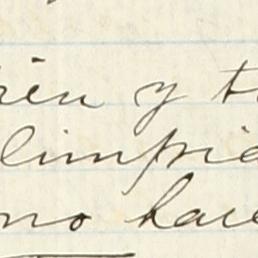 rén y t
limpia
no hace